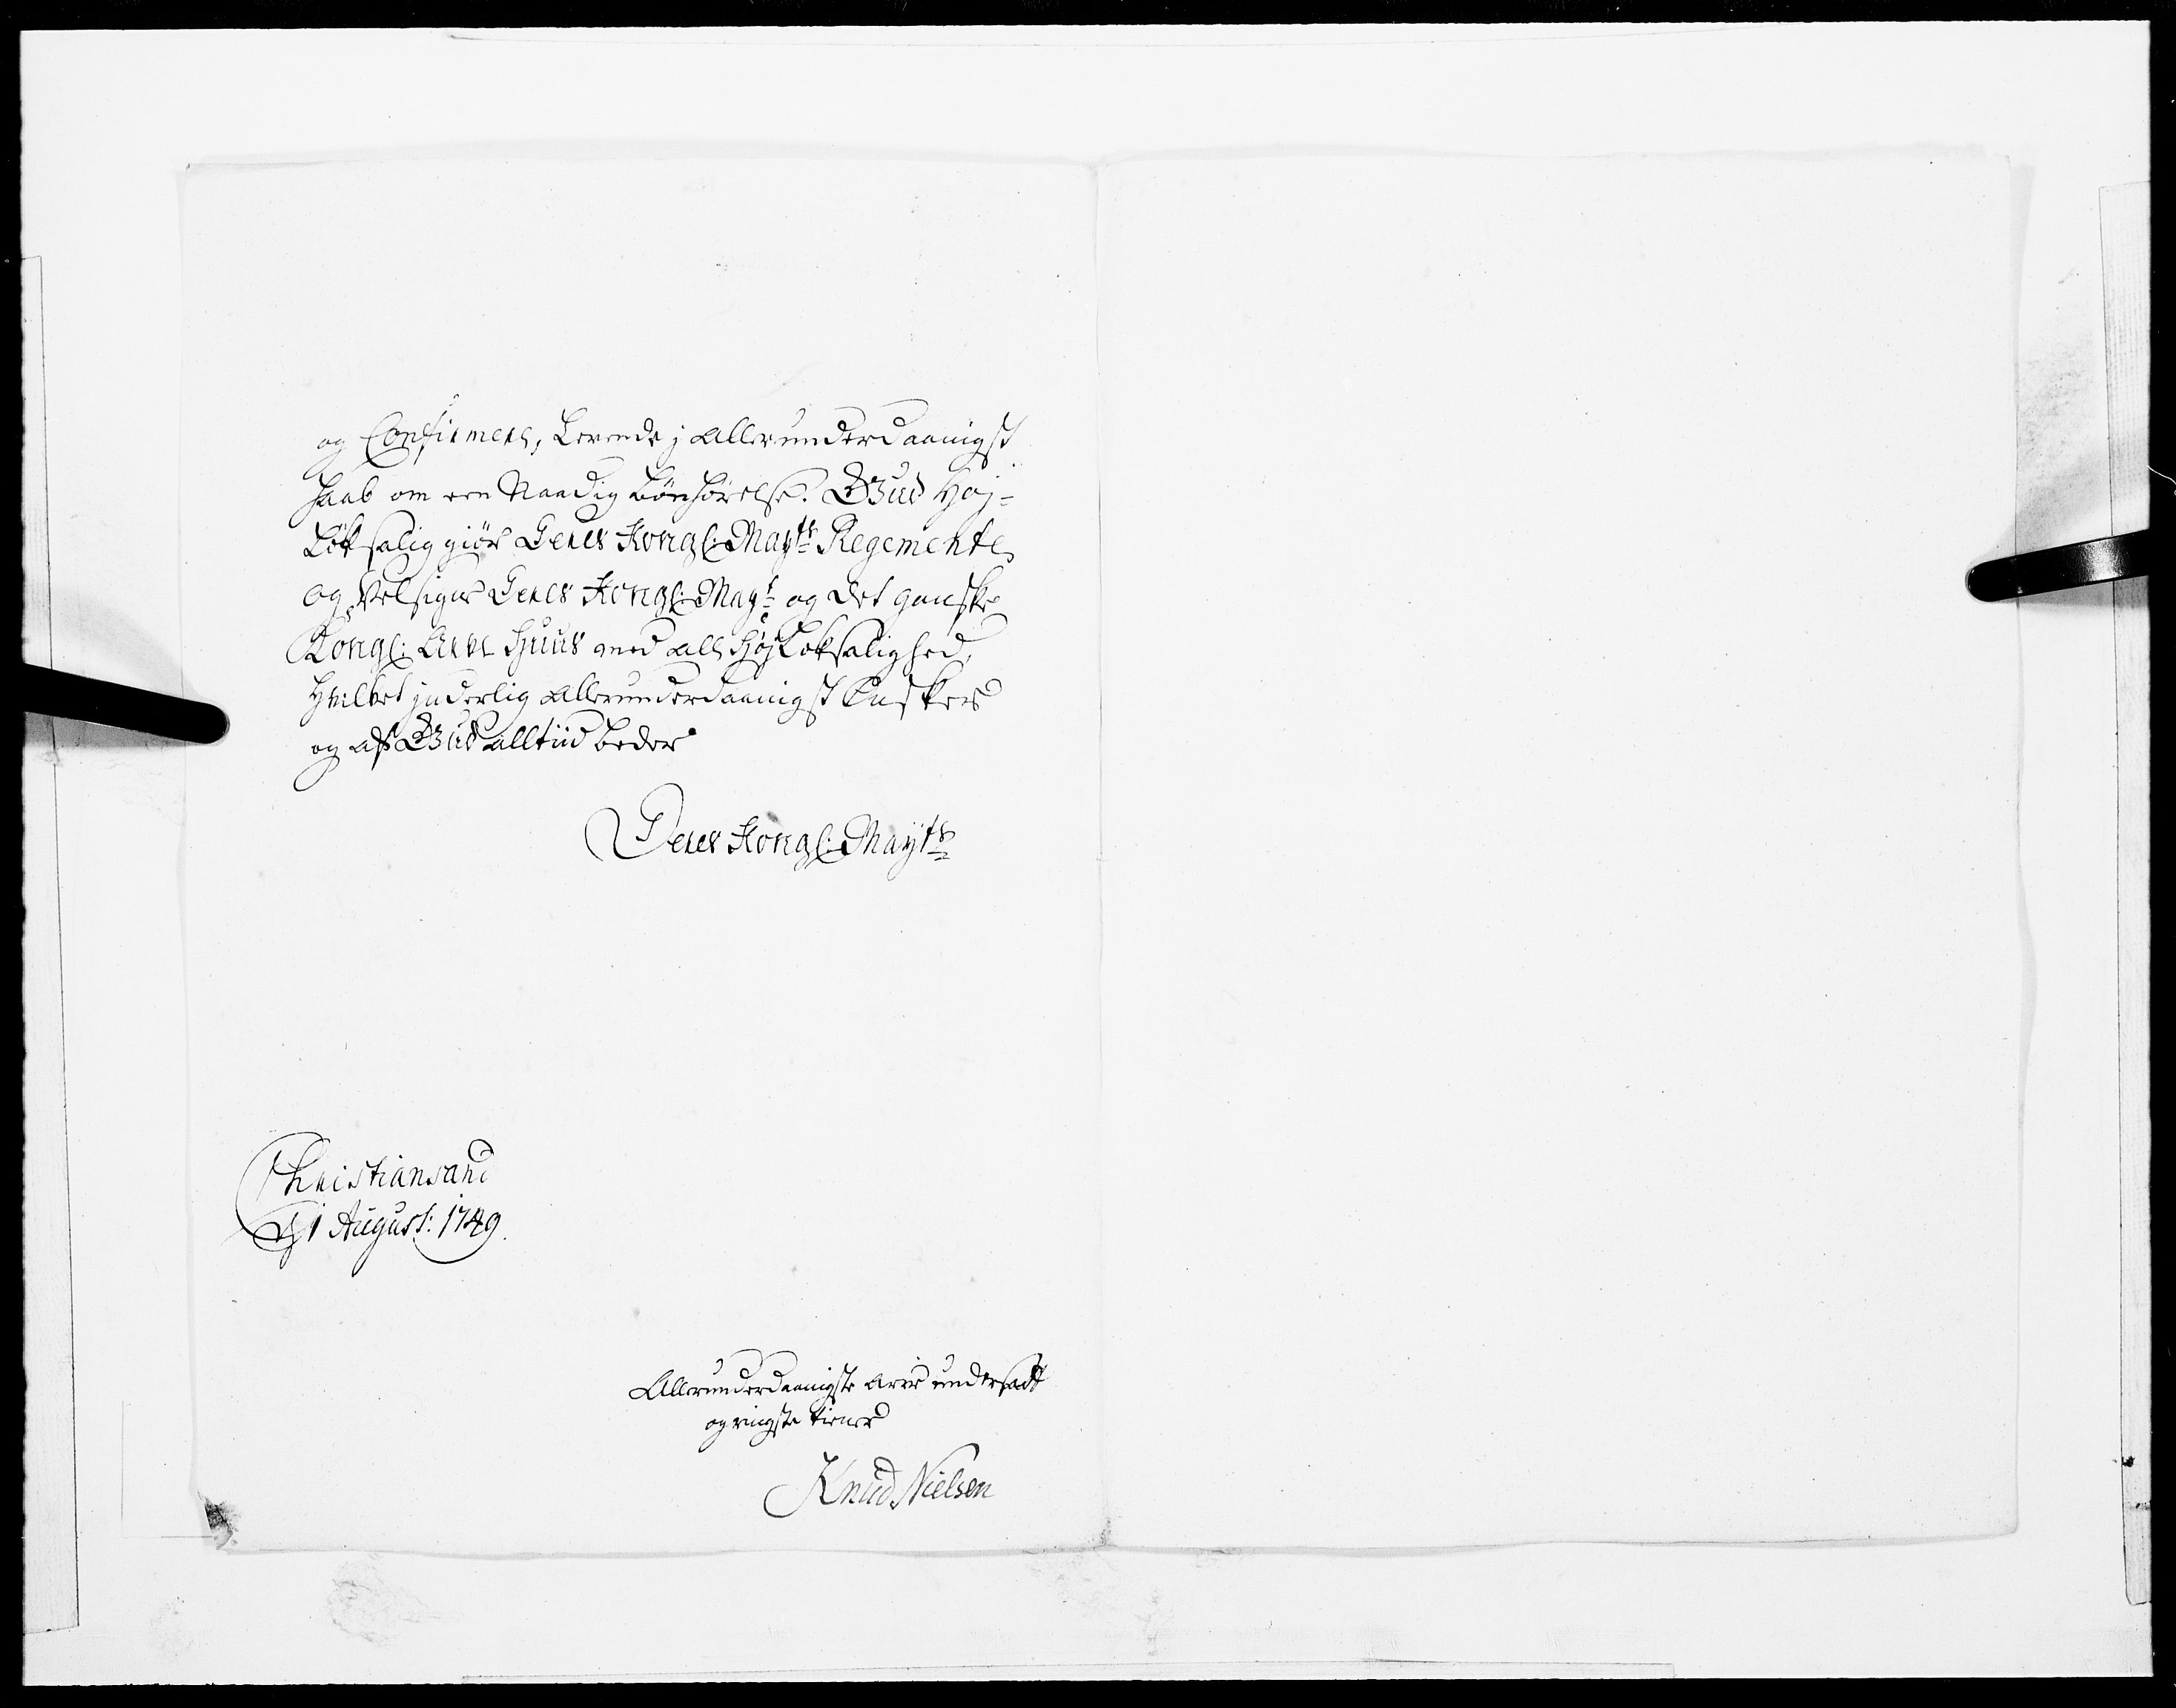 og Confirmere, Levende j allerunderdaanigst
haab om een Naadig bönhörelse. Gud Høj-
Løksalig giör Deres Kongl: Mayts Regemente
og Velsigne Deres Kongl: Mayt og det ganske
Kongl: Arve Huus med all Høj Loksalighed,
Hvilket jnderlig allerunderdaanigst Ønsker
og af Gud alltiid beder
Deres Kongl: Mayts
Christiansand
d 1 August: 1749.
Allerunderdaanigste arve undersaatt
og ringste tiener
Knud Nielsen